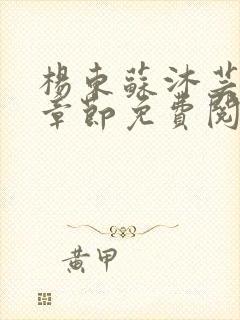 楊東蘇沐芸
章節免費閱
黃甲